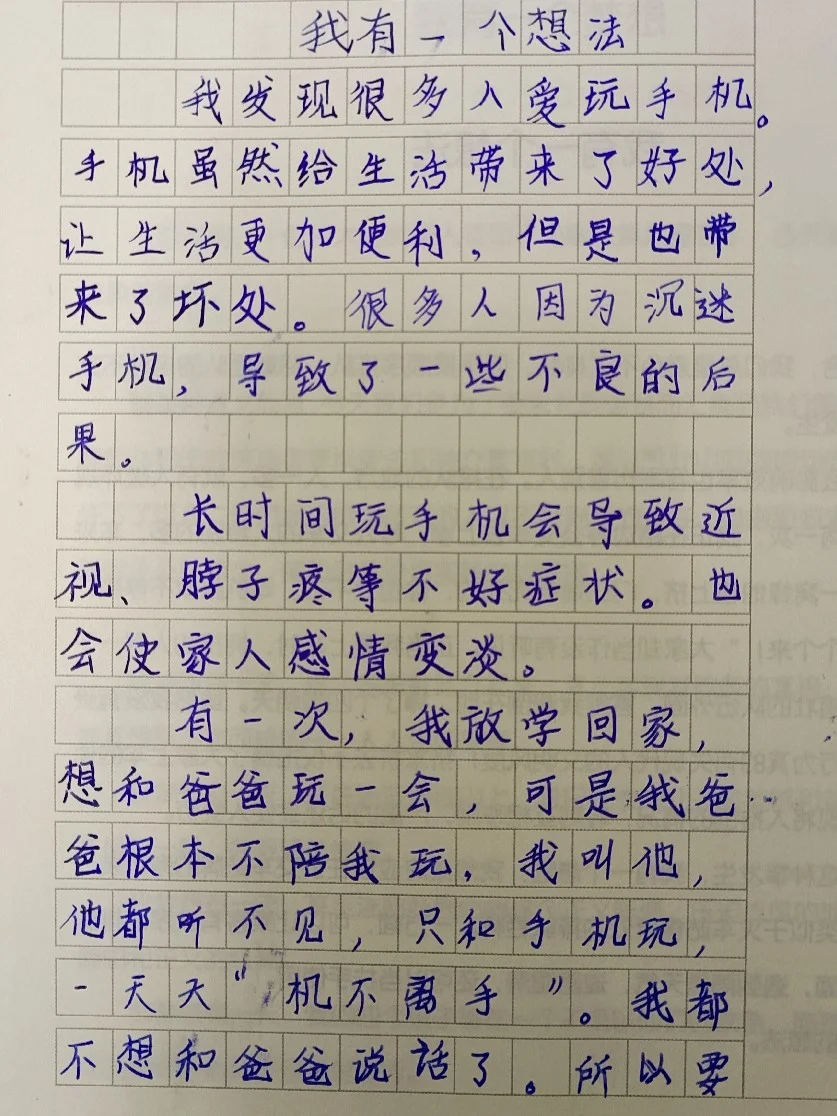 我有一个想法
我发现很多人爱玩手机。
手机虽然给生活带来了好处，
让生活更加便利，但是也带
来了坏处。很多人因为沉迷
手机，导致了一些不良的后
果。
长时间玩手机会导致近
视、脖子疼等不好症状。也
会使家人感情变淡。
有一次，我放学回家，
想和爸爸玩一会，可是我爸
爸根本不陪我玩，我叫他，
他都听不见，只和手机玩，
一天天“机不离手”。我都
不想和爸爸说话了。所以要